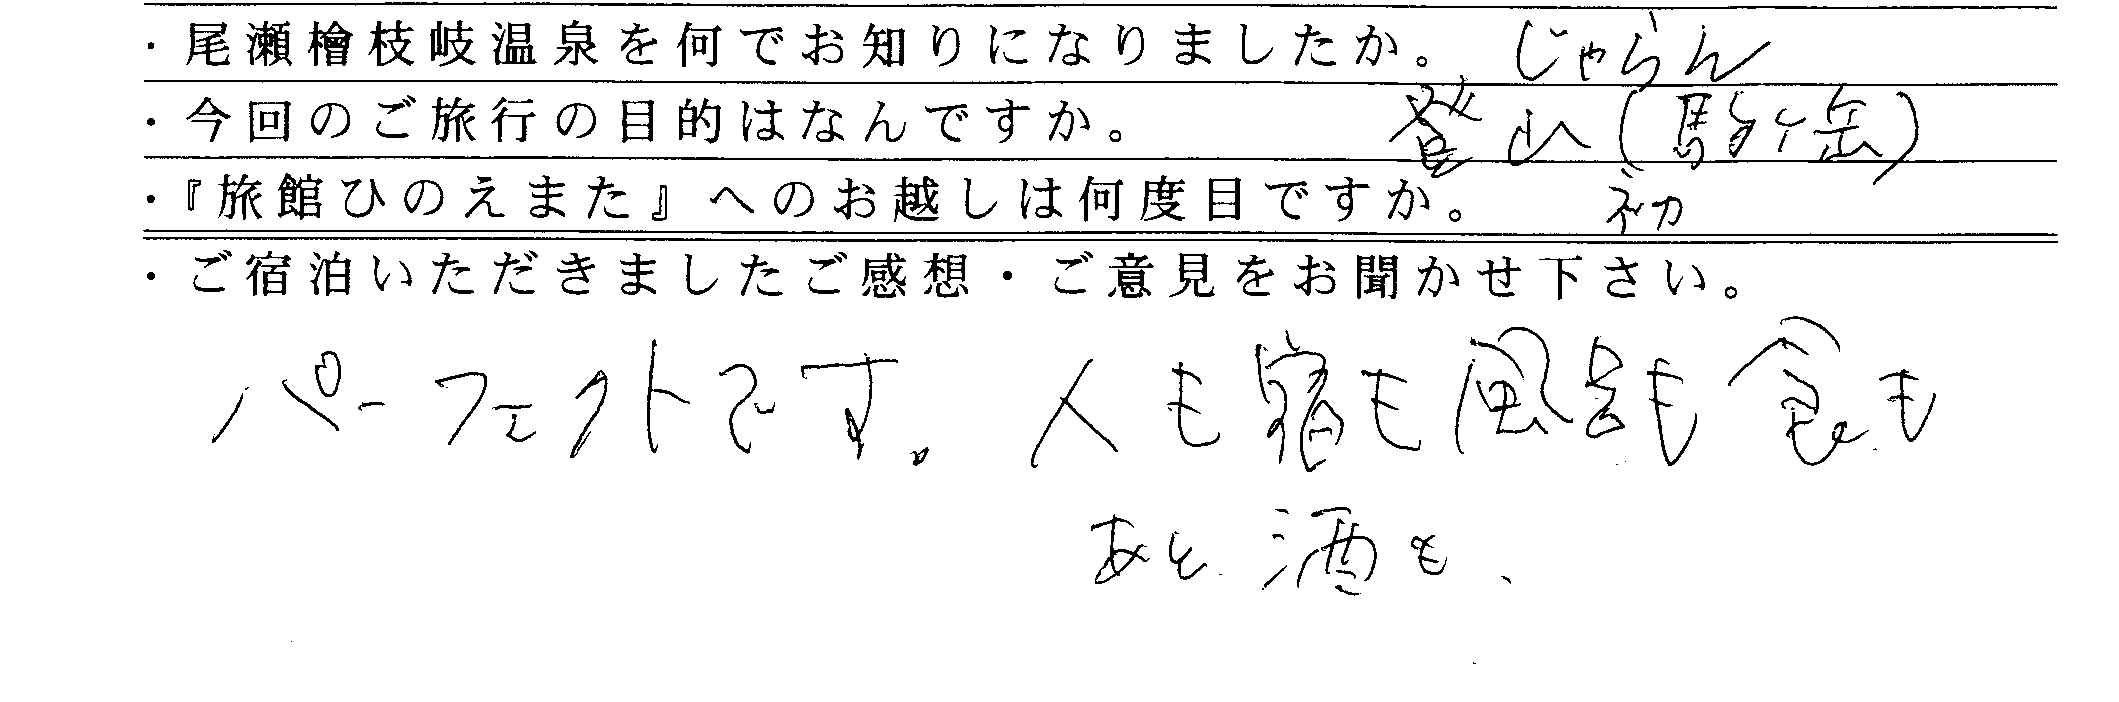 ・尾瀬檜枝岐温泉を何でお知りになりましたか。 じゃらん
・今回のご旅行の目的はなんですか。 登山(駒ヶ岳)
・『旅館ひのえまた』へのお越しは何度目ですか。 初
・ご宿泊いただきましたご感想・ご意見をお聞かせ下さい。
パーフェクトです。人も宿も風呂も食も
あと、酒も、